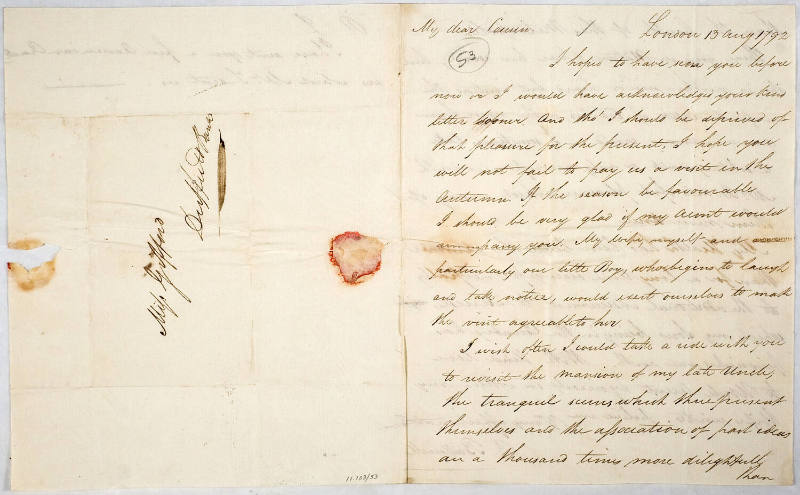 Miss Gifford
My dear Cousin
London 13 Aug 1792
53
I hoped to have seen you before
now or I would have acknowledged your kind
letter sooner. And tho' I should be deprived of
that pleasure for the present, I hope you
will not fail to pay us a visit in the
Autumn If the season be favourable
I should be very glad if my Aunt would
accompany you. My Wife, myself and
particularly our little Boy, who begins to laugh
and take notice, would exert ourselves to make
the visit agreeable to her
I wish often I could take a ride with you
to revisit the mansion of my late Uncle,
the tranquil scenes which there present
themselves and the association of past ideas
are a thousand times more delightfull
than
11.102/53